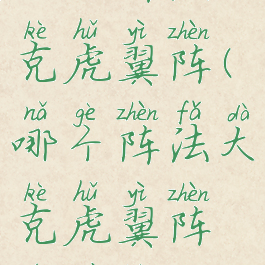 kè hǔ yì zhèn
克虎翼阵(
nǎ gè zhèn fǎ dà
哪个阵法大
kè hǔ yì zhèn
克虎翼阵